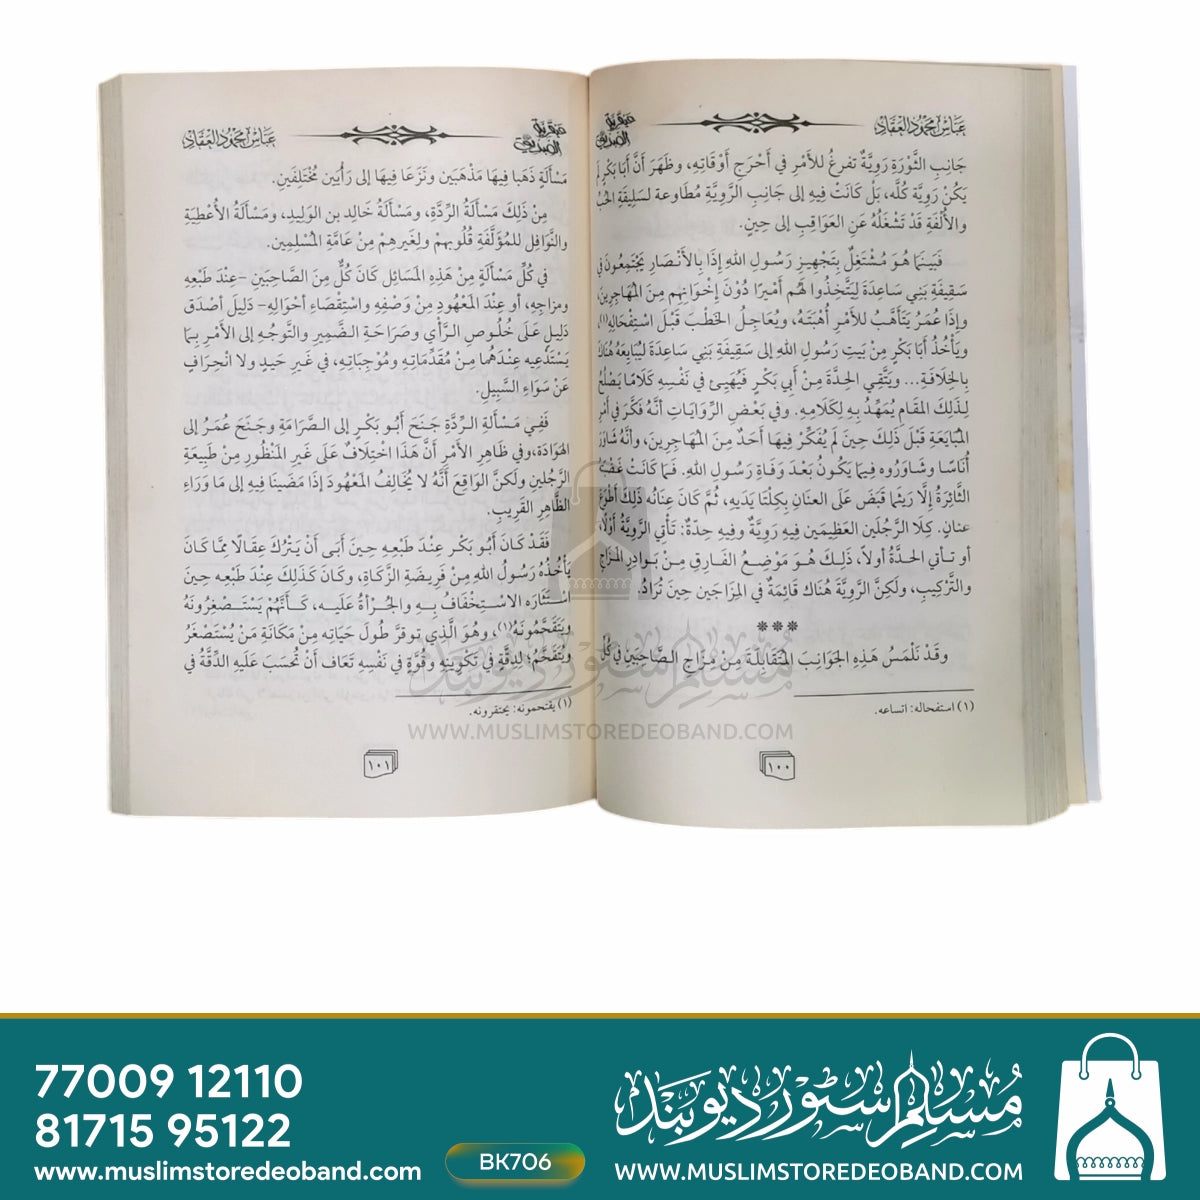 عباس محمود العقاد
عبقرية
الصديق
جَانِبِ الثَّوْرَةِ رَوِيَّةٌ تفرغُ للأَمْرِ في أَحْرَجِ أَوْقَاتِهِ، وظَهَرَ أَنَّ أبَا بَكْرٍ لَمْ
يَكُنْ رَوِيَّة كُلَّه، بَلْ كَانَتْ فِيهِ إلى جَانِبِ الرَّوِيَّةِ مُطَاوعة لسَلِيقَةِ الحُبِّ
والأُلْفَةِ قَدْ تَشْغَلُهُ عَنِ العَوَاقِبِ إلى حِينٍ.
فَبَيْنَمَا هُوَ مُشْتَغِلٌ بِتَجْهِيزِ رَسُولِ اللهِ إِذَا بِالأَنْصَارِ يَجْتَمِعُونَ في
سَقِيفَةِ بَنِي سَاعِدَةَ لِيَتَّخِذُوا لَهُم أَمِيرًا دُوْنَ إِخْوَانِهِم مِنَ المُهَاجِرِينَ،
وإِذَا عُمَرُ يَتَأَهَّبُ للأَمْرِ أُهْبَتَهُ، ويُعَاجِلُ الخَطْبَ قَبْلَ اسْتِفْحَالِهِ(١)،
ويَأْخُذُ أَبَا بَكْرٍ مِنْ بَيتِ رَسُولِ اللهِ إلى سَقِيفَةِ بَنِي سَاعِدَةَ ليُبَايِعَهُ هُنَاكَ
بِالخِلَافَةِ... ويَتَّقِي الحِدَّةَ مِنْ أَبِي بَكْرٍ فَيُهَيِئ في نَفْسِهِ كَلَامًا يَصْلُحُ
لِذَلِكَ المَقَامِ يُمَهِّدُ بِهِ لِكَلَامِهِ. وفي بَعْضِ الرِّوَايَاتِ أَنَّهُ فَكَّرَ في أَمْرِ
المُبَايَعَةِ قَبْلَ ذَلِكَ حِينَ لَم يُفَكِّرْ فِيهَا أَحَدٌ مِنَ المُهَاجِرِينَ، وأَنَّهُ شَاوَرَ
أُنَاسًا وشَاوَرُوه فِيمَا يَكُونُ بَعْدَ وَفَاةِ رَسُولِ اللهِ. فَمَا كَانَتْ غَضْبَتُهُ
الثَّائِرَةُ إلَّا رَيْثَمَا قَبَضَ عَلَى العِنَانِ بِكِلْتَا يَدَيهِ، ثُمَّ كَانَ عِنَانُه ذَلِكَ أَطْوَعَ
عِنَانٍ. كِلَا الرَّجُلَين العَظِيمَين فِيهِ رَوِيَّةٌ وفِيهِ حِدَّةٌ: تَأْتِي الرَّوِيَّةُ أَوَّلًا،
أو تأتي الحدَّةُ أولاً، ذَلِكَ هُوَ مَوْضِعُ الفَارِقِ مِنْ بَوادِرِ المِزَاجِ
والتَّرْكِيبِ، ولَكِنَّ الرَّوِيَّةَ هُنَاكَ قَائِمَةٌ في المِزَاجَين حِينَ تُرَادُ.
***
وقَدْ نَلْمَسُ هَذِهِ الجَوَانِبَ المُتَقَابِلَةَ مِنْ مِزَاجِ الصَّاحِبَينِ في كُلِّ
(١) استفحاله: اتساعه.
١٠٠
عباس محمود العقاد
عبقرية
الصديق
مَسْأَلَةٍ ذَهَبا فِيهَا مَذْهَبَين ونَزَعَا فِيهَا إلى رَأْيَين مُخْتَلِفَين.
مِنْ ذَلِكَ مَسْأَلَةُ الرِّدَّةِ، ومَسْأَلَةُ خَالِد بن الوَلِيدِ، ومَسْأَلَةُ الأُعْطِيَةِ
والنَّوَافِلِ للمُؤَلَّفَةِ قُلُوبهمْ ولِغَيرِهِمْ مِنْ عَامَّةِ المُسْلِمِين.
في كُلِّ مَسْأَلَةٍ مِنْ هَذِهِ المَسَائِلِ كَانَ كُلٌّ مِنَ الصَّاحِبَينِ -عِنْدَ طَبْعِهِ
ومِزاجِهِ، أو عِنْدَ المَعْهُودِ مِنْ وَصْفِهِ واسْتِقْصَاءِ أحْوَالِهِ- دَلِيلَ أصْدَق
دَلِيلٍ عَلَى خُلُوصِ الرَّأْي وصَرَاحَةِ الضَّمِيرِ والتَّوَجُّهِ إلى الأَمْرِ بِمَا
يَسْتَدْعِيه عِنْدَهُمَا مِنْ مُقَدِّمَاتِهِ ومُوْجِبَاتِهِ، في غَيرِ حَيدٍ ولا انْحِرَافٍ
عَنْ سَوَاءِ السَّبِيلِ.
فَفِي مَسْأَلَةِ الرِّدَّةِ جَنَحَ أَبُو بَكْرٍ إلى الصَّرَامَةِ وجَنَحَ عُمَرُ إلى
الهَوَادَةِ،وفي ظَاهِرِ الأمْرِ أنَّ هَذَا اخْتِلَافٌ عَلَى غَيرِ المَنْظُورِ مِنْ طَبِيعَةِ
الرَّجُلَينِ ولَكنَّ الوَاقِعَ أَنَّهُ لا يُخَالِفُ المَعْهُودَ إذَا مَضَينَا فِيهِ إلى مَا وَرَاءِ
الظَّاهِرِ القَرِيبِ.
فَقَدْ كَانَ أَبُو بَكْر عِنْدَ طَبْعِهِ حِينَ أَبَى أَنْ يَتْرُكَ عِقَالًا مِمَّا كَانَ
يَأْخُذُه رَسُولُ اللهِ مِنْ فَرِيضَةِ الزَّكَاةِ، وكَانَ كَذَلِكَ عِنْدَ طَبْعِه حِينَ
اسْتَثَارَه الاسْتِخْفَافُ بِهِ والجُرْأَةُ عَلَيهِ، كَأَنَّهُمْ يَسْتَصْغِرُونَهُ
ويَتَقَحَّمُونَهُ(١)، وهُوَ الَّذِي تَوقَّرَ طُولَ حَيَاتِه مِنْ مَكَانَةِ مَنْ يُسْتَصْغَرُ
ويُتَقَحَّمُ؛ لِدِقَّةٍ في تَكْوِينِهِ وقُوَّةٍ في نَفْسِهِ تَعَافُ أَنْ تُحْسَبَ عَلَيهِ الدِّقَّةُ في
(١) يقتحمونه: يحتقرونه.
١٠١
مسلم سٹور دیوبند
WWW.MUSLIMSTOREDEOBAND.COM
77009 12110
81715 95122
www.muslimstoredeoband.com
BK706
مسلم سٹور دیوبند
WWW.MUSLIMSTOREDEOBAND.COM